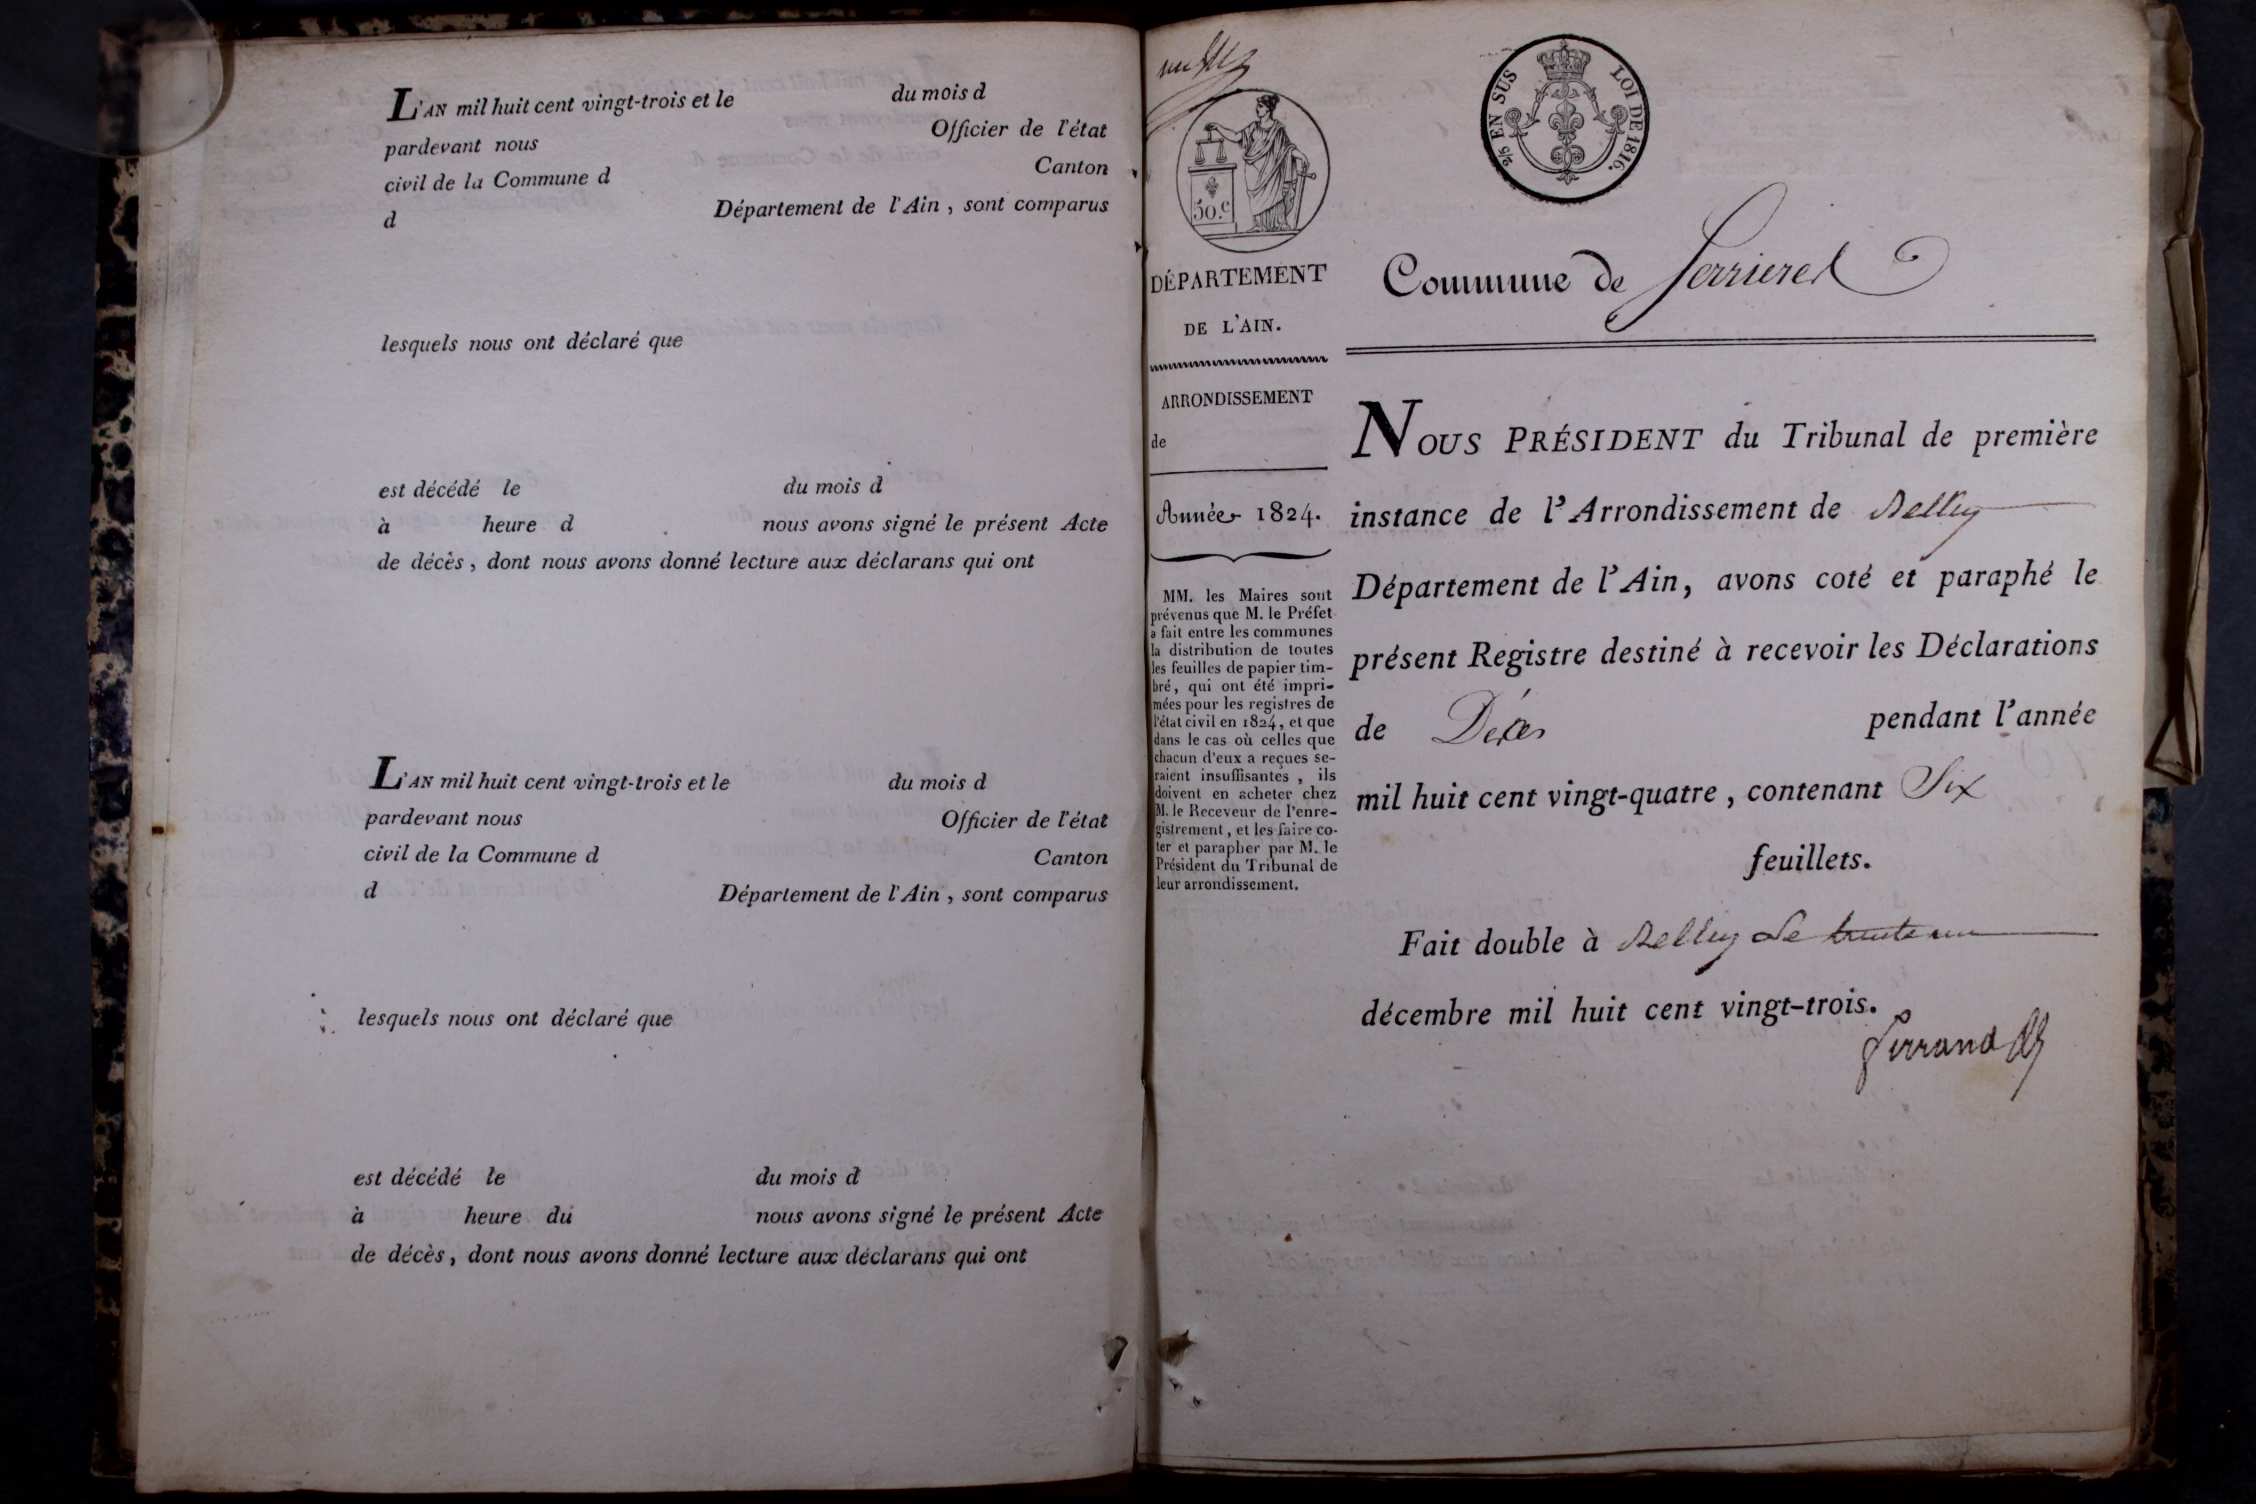 L'AN mil huit cent vingt-trois et le du mois d
pardevant nous Officier de l'état
civil de la Commune d Canton
d Département de l'Ain, sont comparus
lesquels nous ont déclaré que
est décédé le du mois d
à heure d nous avons signé le présent Acte
de décès, dont nous avons donné lecture aux déclarans qui ont
L'AN mil huit cent vingt-trois et le du mois d
pardevant nous Officier de l'état
civil de la Commune d Canton
d Département de l'Ain, sont comparus
lesquels nous ont déclaré que
est décédé le du mois d
à heure du nous avons signé le présent Acte
de décès, dont nous avons donné lecture aux déclarans qui ont
50.c
DÉPARTEMENT
DE L'AIN.
ARRONDISSEMENT
de
Année 1824.
MM. les Maires sont
prévenus que M. le Préfet
a fait entre les communes
la distribution de toutes
les feuilles de papier tim-
bré, qui ont été impri-
mées pour les registres de
l'état civil en 1824, et que
dans le cas où celles que
chacun d'eux a reçues se-
raient insuffisantes, ils
doivent en acheter chez
M. le Receveur de l'enre-
gistrement, et les faire co-
ter et parapher par M. le
Président du Tribunal de
leur arrondissement.
2/5 EN SUS LOI DE 1816.
Commune de Serrieres
NOUS PRÉSIDENT du Tribunal de première
instance de l'Arrondissement de Belley
Département de l'Ain, avons coté et paraphé le
présent Registre destiné à recevoir les Déclarations
de Décès pendant l'année
mil huit cent vingt-quatre, contenant Six
feuillets.
Fait double à Belley le trente un
décembre mil huit cent vingt-trois.
Ferrand